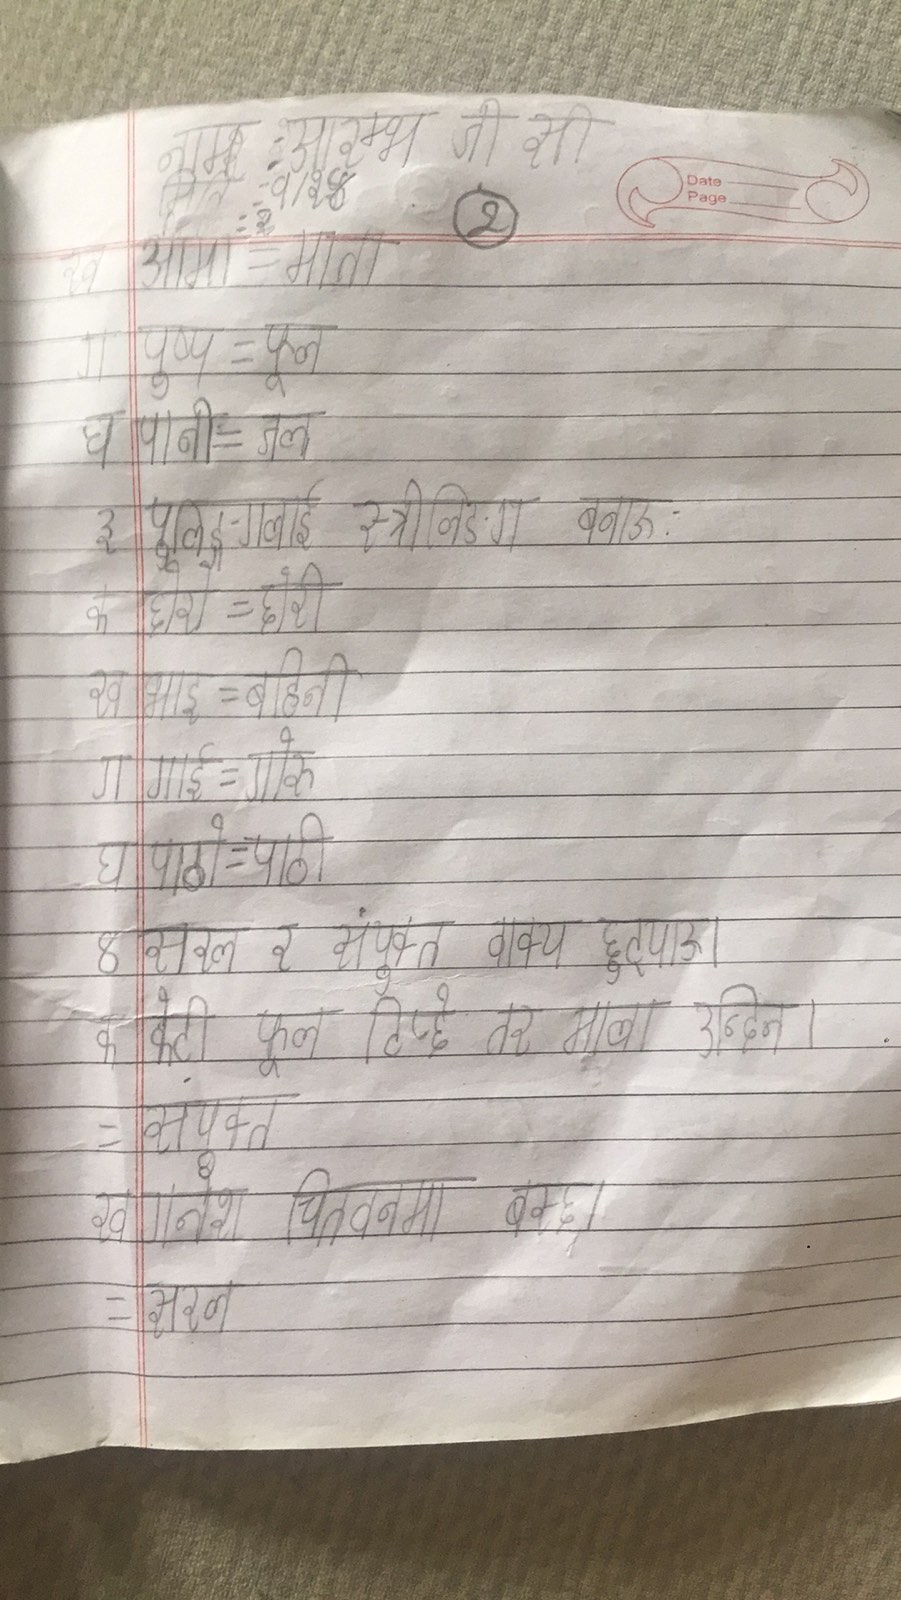 नाम :आरम्भ जी सी
Date
Page
मिति :-
२
ख आमा = माता
ग पुष्प = फूल
घ पानी = जल
३ पुलिङ्गलाई स्त्रीलिङग बनाऊ:
क छोरो = छोरी
ख भाइ = बहिनी
ग गाई = गोरू
घ पाठो = पाठी
४ सरल र संयुक्त वाक्य छुट्याऊ।
क केटी फूल टिप्छे तर माला उन्दिन।
= संयुक्त
ख गनेश चितवनमा बस्छ।
= सरल